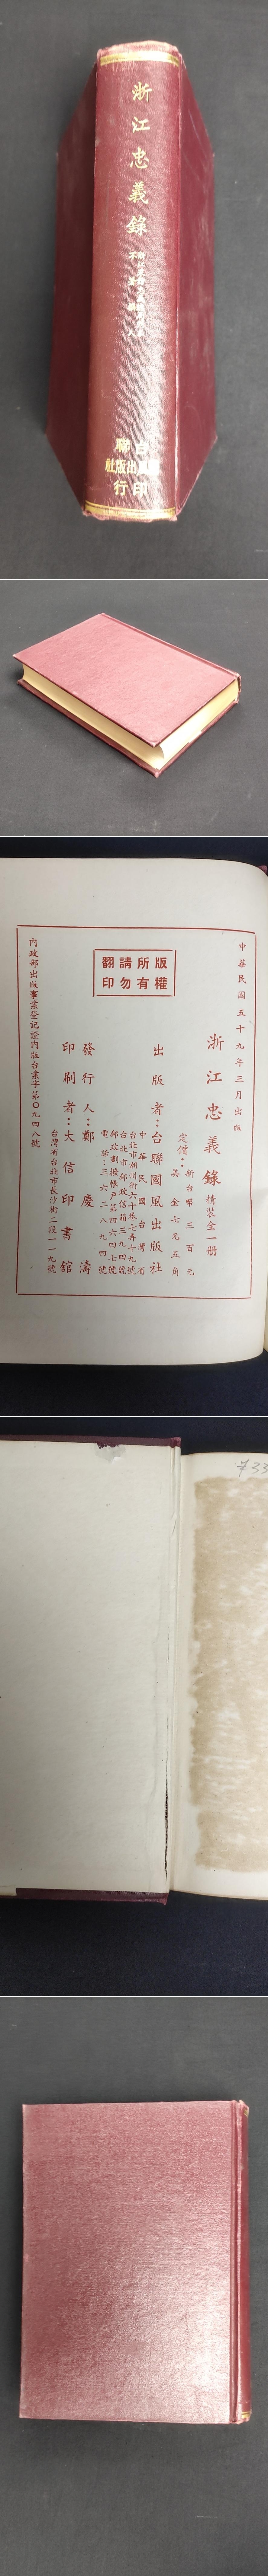 浙江忠義錄
浙江采訪忠義總局
不著撰人
台聯
國風出版社
印行
中華民國五十九年三月出版
浙江忠義錄
精裝全一冊
定價：
新台幣三百元
美金七元五角
版權所有
請勿翻印
出版者：台聯國風出版社
中華民國台灣省
台北市潮州街六十巷七弄十九號
台北市郵政信箱三九四號
郵政劃撥帳戶第四六四七號
電話：三六二八九四號
發行人：鄭慶濤
印刷者：大信印書舘
台灣省台北市長沙街二段一一九號
內政部出版事業登記證內版台業字第〇九四八號
733